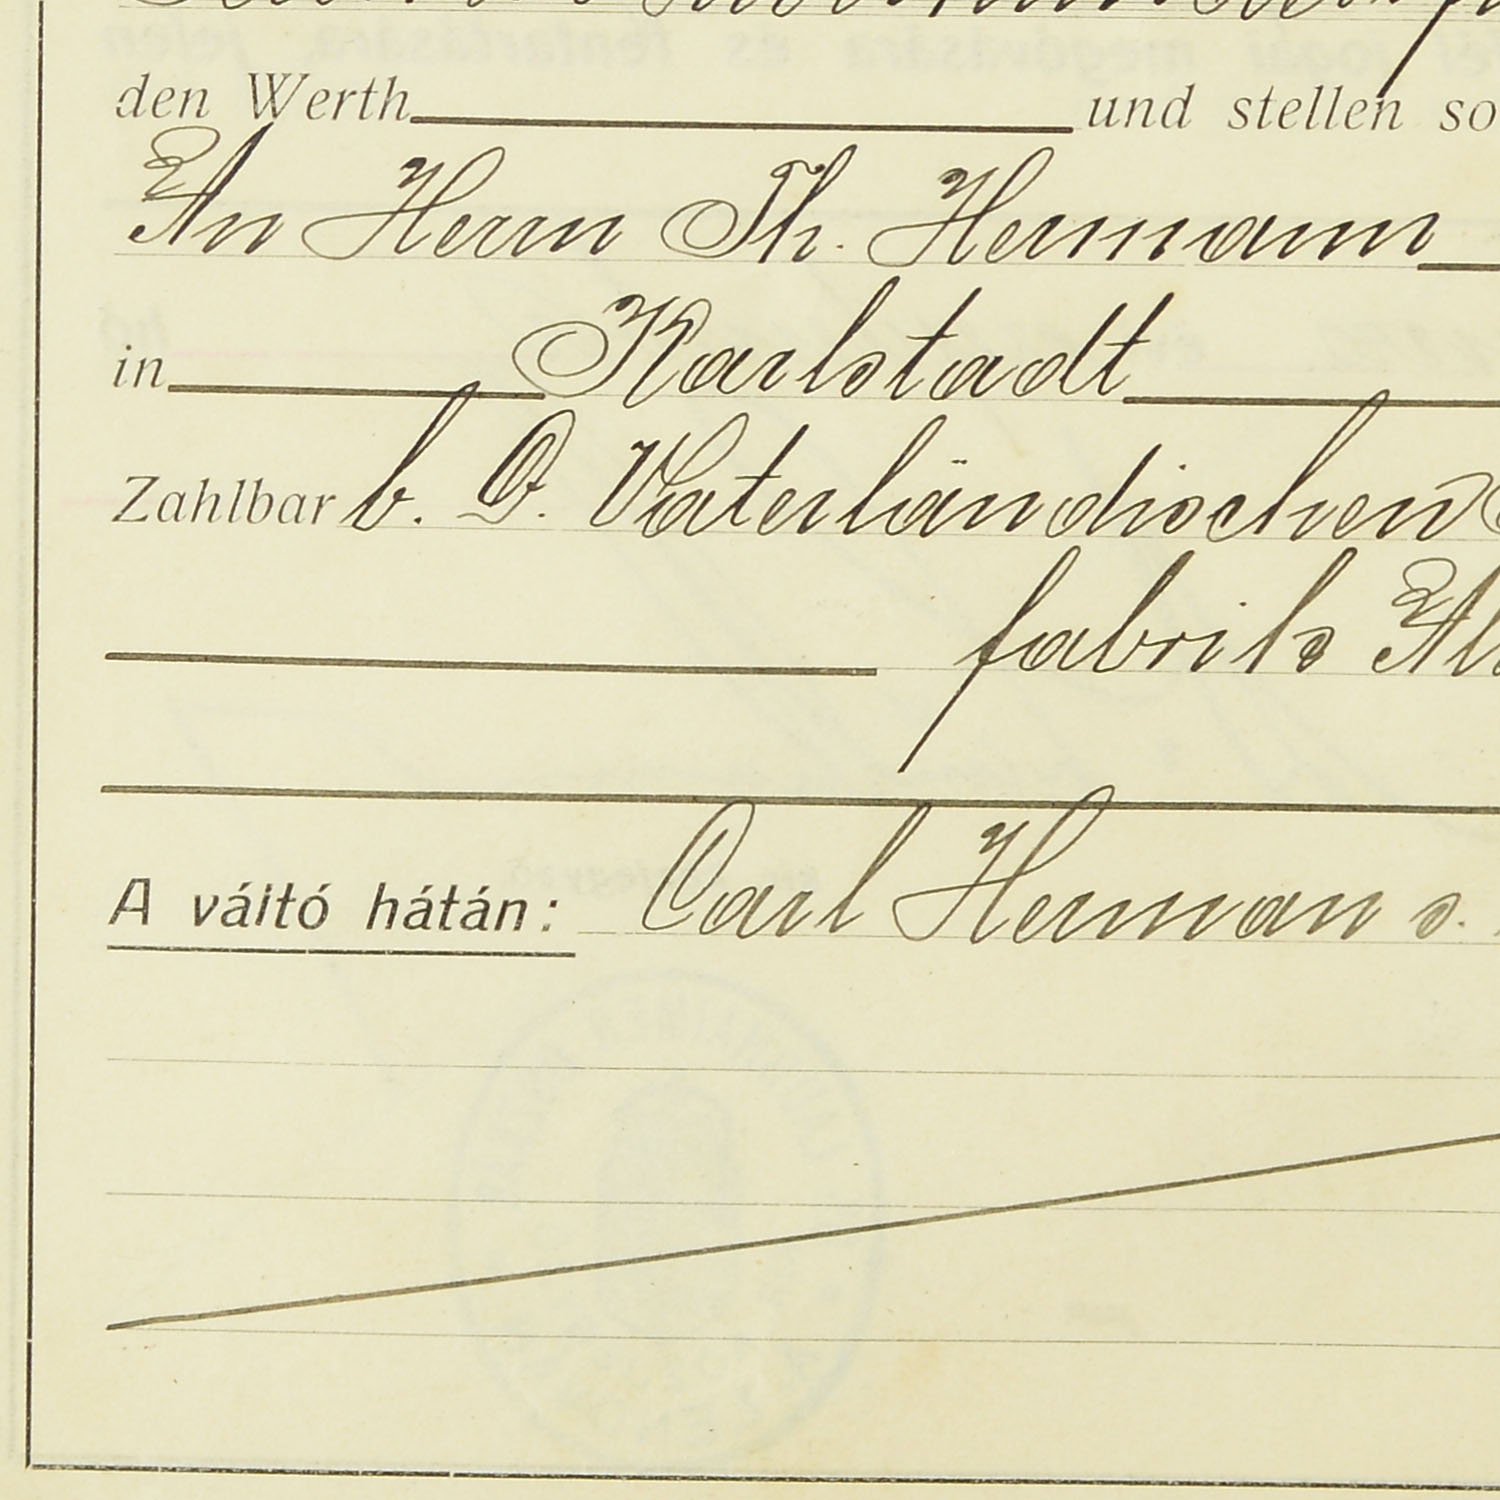 den Werth und stellen so
An Herrn Th. Hermann
in Karlstadt
Zahlbar b. D. Vaterländischen
fabriks
A váltó hátán: Carl Herman s.